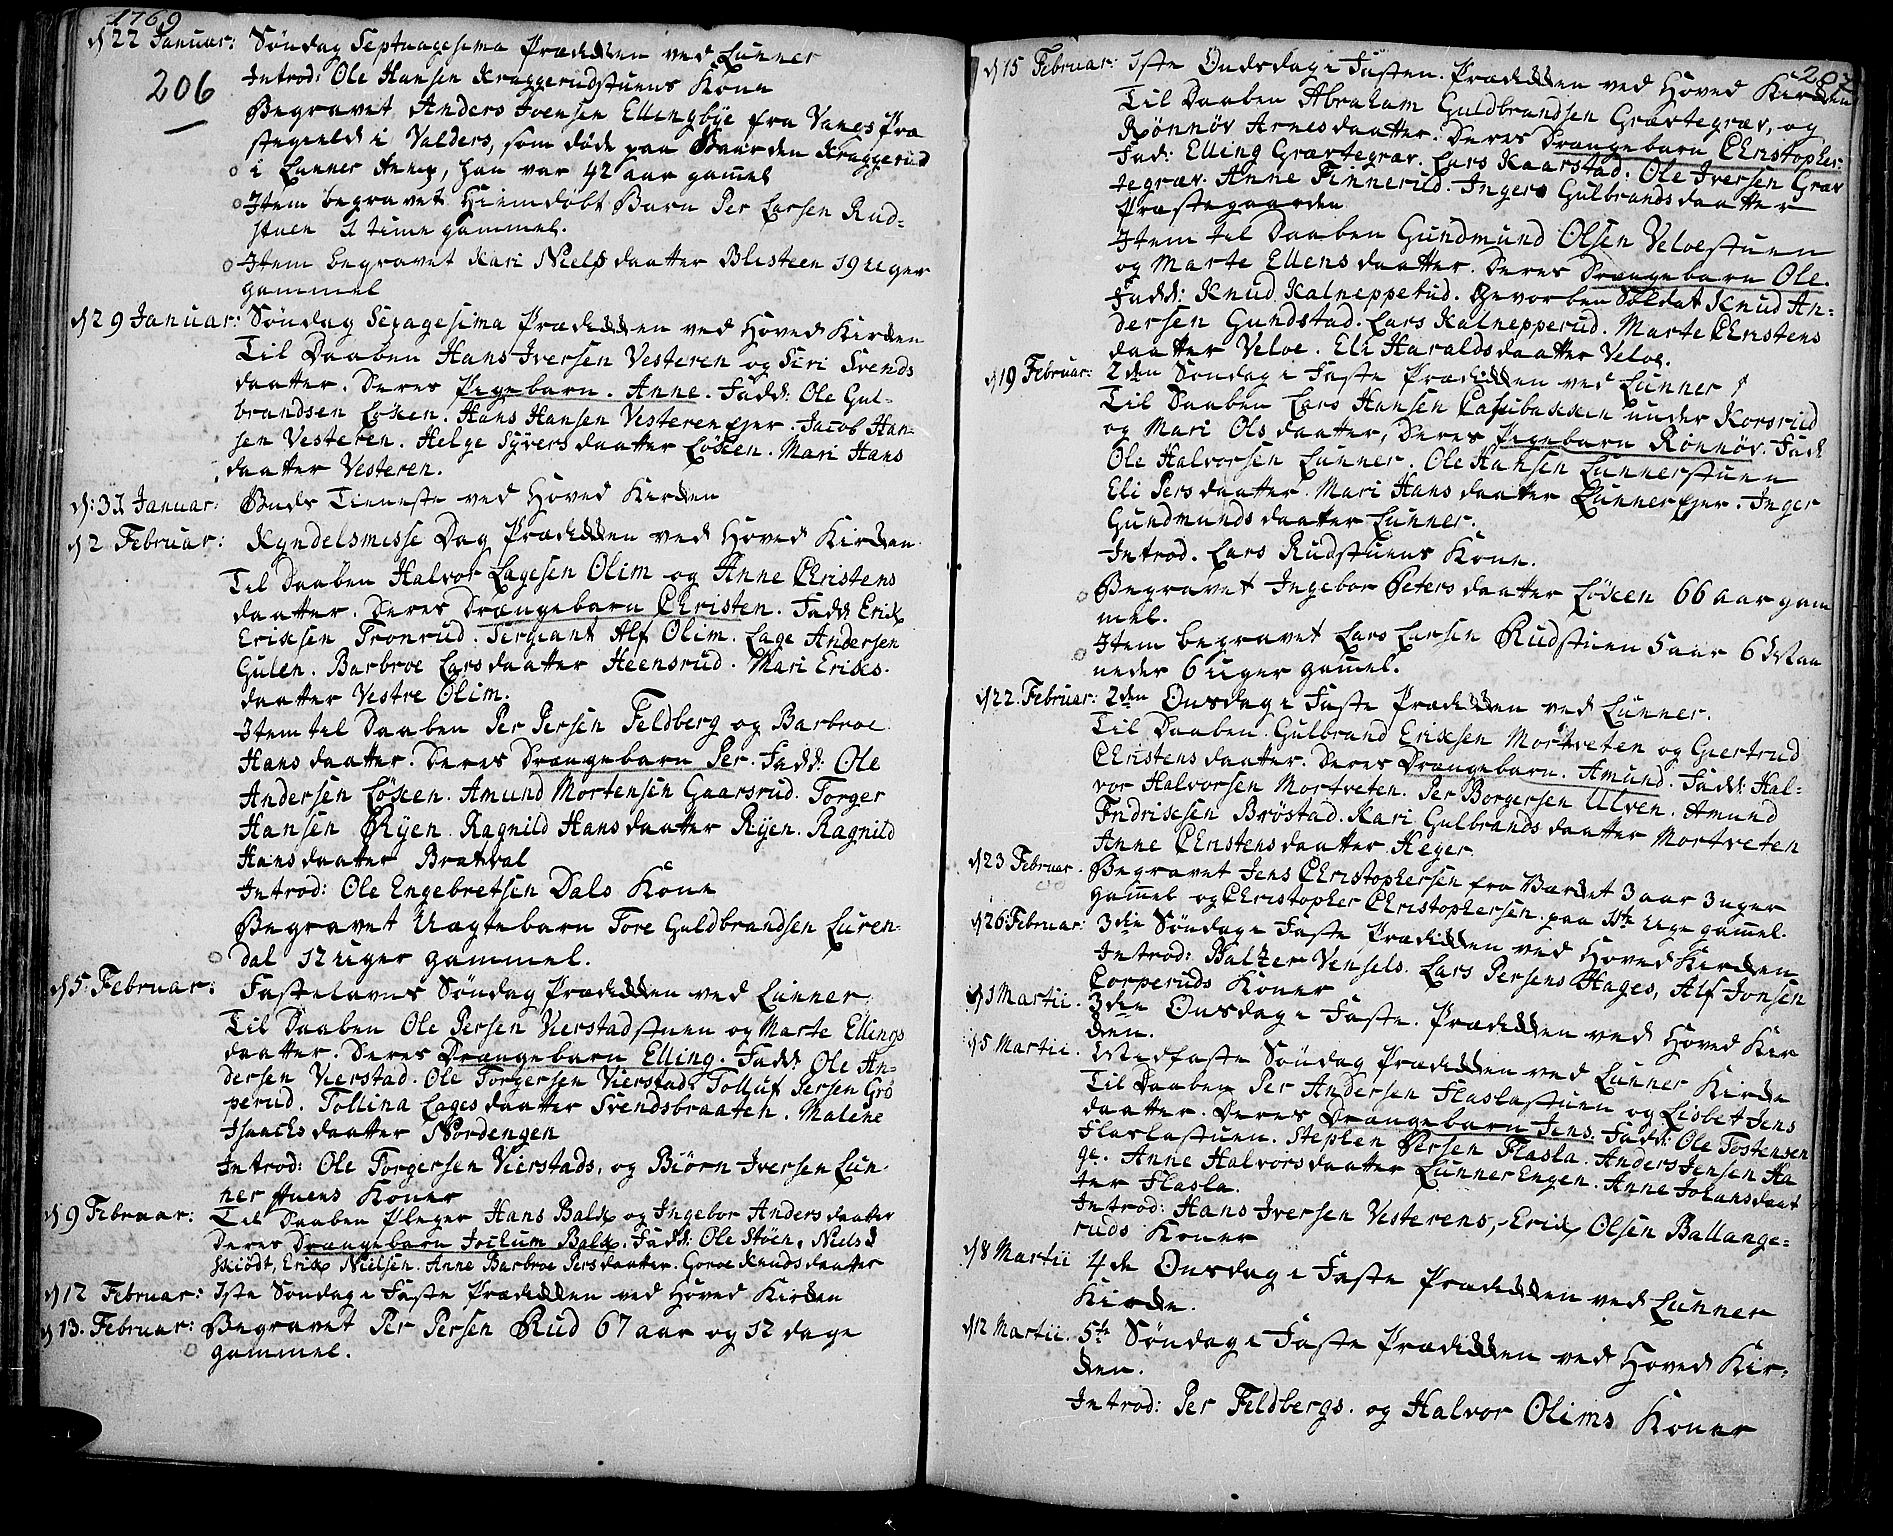 1769
206
d 22 Januar: Søndag Septuagesima Prædikken ved Lunner
Introd: Ole Hansen Kraggerudstuens Kone
Begravet Anders Joensen Ellingbye fra Vangs Præ
stegield i Valders, som døde paa Gaarden Kraggerud
i Lunner Annex, han var 42 aar gamel
Item begravet Hiemdøbt Barn Per Larsen Rud-
stuen 1 time gammel.
Item begravet Kari Niels daatter Blisteen 19 uger
gammel
d 29 Januar: Søndag Sexagesima Prædikken ved Hoved Kirken
Til Daaben Hans Iversen Vesteren og Siri Svends
daatter. Deres Pigebarn. Anne. Fadd: Ole Gul-
brandsen Løken. Hans Hansen Vesteren ejer. Jacob Han-
sen Vesteren. Helge Syvers daatter Løken. Mari Hans
daatter Vesteren.
d: 31 Januar: Guds Tieneste ved Hoved Kirken
d 2 Februar: Kyndelsmisse Dag Prædikken ved Hoved Kirken
Til Daaben Halvor Lagesen Olim og Anne Christens
daatter. Deres Drængebarn Christen. Fadd: Erik
Eriksen Tronrud. Sergeant Alf Olim. Lage Andersen
Gulen. Barbroe Lars daatter Heensrud. Mari Eriks-
daatter Vestre Olim.
Item til Daaben Per Persen Feldberg og Barbroe
Hans daatter. Deres Drængebarn Per. Fadd: Ole
Andersen Løken. Amund Mortensen Gaarsrud. Torger
Hansen Ryen. Ragnild Hans daatter Ryen. Ragnild
Hans daatter Bratval
Introd: Ole Engebretsen Dals Kone
Begravet Uægtebarn Tore Guldbrandsen Luren-
dal 12 uger gammel.
d 5 Februar: Fastelavns Søndag Prædikken ved Lunner
Til Daaben Ole Persen Vierstad stuen og Marte Ellings
daatter. Deres Drængebarn Elling. Fadd: Ole An-
dersen Vierstad. Ole Torgersen Vierstad. Tolluf Persen Gro
perud. Tollina Lages daatter Svendsbraaten. Malene
Isancks daatter Nordengen
Introd: Ole Torgersen Vierstads, og Biørn Iversen Lun-
ner stuens Koner
d 9 Februar: Til Daaben Pleger Hans Balk og Ingebor Anders daatter
Deres Drængebarn Jockum Balk. Fadd: Ole Støen. Niels
Skiødt, Erik Nielsen. Anne Barbroe Pers daatter. Goroe Knuds daatter
d 12 Februar: 1ste Søndag i Faste Prædikken ved Hoved Kirken
d 13. Februar: Begravet Per Persen Rud 67 aar og 12 dage
gammel.
207
d 15 Februar: 1ste Onsdag i Fasten. Prædikken ved Hoved Kirken
Til Daaben Abraham Guldbrandsen Grævtegræv, og
Rønnøv Arnes daatter. Deres Drængebarn Christopher.
Fad: Elling Grævtegræv. Lars Kaarstad. Ole Iversen Græv
tegræv. Anne Finnerud. Inger Gulbrands daatter
Præstegaarden
Item til Daaben Gundmund Olsen Veloestuen
og Marte Ellens daatter. Deres Drængebarn Ole.
Fadd: Knud Kalneppetud. Gevorben Soldat Knud An-
dersen Gundstad. Lars Kalnepperud. Marte Christens
daatter Veloe. Eli Haralds daatter Veloe.
d 19 Februar: 2den Søndag i Faste Prædikken ved Lunner
Til Daaben Lars Hansen under Korsrud
og Mari Ols daatter, Deres Pigebarn Rønnøv. Fadd
Ole Halvorsen Lunner. Ole Hansen Lunnerstuen
Eli Pers daatter. Mari Hans daatter Lunner ejer. Inger
Gundmunds daatter Lunner.
Introd. Lars Rudstuens Kone.
Begravet Ingebor Peters daatter Løken 66 aar gam
mel.
Item begravet Lars Larsen Rudstuen 5 aar 6 Maa
neder 6 uger gamel.
d 22 Februar: 2den Onsdag i Faste Prædikken ved Lunner.
Til Daaben. Gulbrand Eriksen Mortveten og Giertrud
Christens daatter. Deres Drængebarn. Amund. Fadd: Hal-
vor Halvorsen Mortveten. Per Borgersen Ulven. Amund
Endriksen Brøstad. Kari Gulbrands daatter Mortveten
Anne Christens daatter Heger
d 23 Februar. Begravet Jens Christophersen fra Værket 3 aar 3 uger
gammel og Christopher Christophersen paa 1ste Uge gamel.
d 26 Februar: 3die Søndag i Faste Prædikken ved Hoved Kirken
Introd: Baltzer Vensels. Lars Persens Hages, Alf Jonsen
Corperuds Koner
d 1 Martii. 3die Onsdag i Faste. Prædikken ved Hoved Kir
ken.
d 5 Martii. Midfaste Søndag Prædikken ved Lunner Kirke
Til Daaben Per Andersen Flaslastuen og Lisbet Jens
daatter. Deres Drængebarn Jens. Fadd: Ole Tostensen
Flaslastuen. Stephen Persen Flasla. Anders Jensen Ha
ge. Anne Halvors daatter Lunner Engen. Anne Johans daat
ter Flasla.
Introd: Hans Iversen Vesterens, Erik Olsen Ballange-
ruds Koner
d 8 Martii 4de Onsdag i Faste Prædikken ved Lunner
Kirke.
d 12 Martii. 5te Søndag i Faste Prædikken ved Hoved Kir-
ken.
Introd: Per Feldbergs. og Halvor Olims Koner